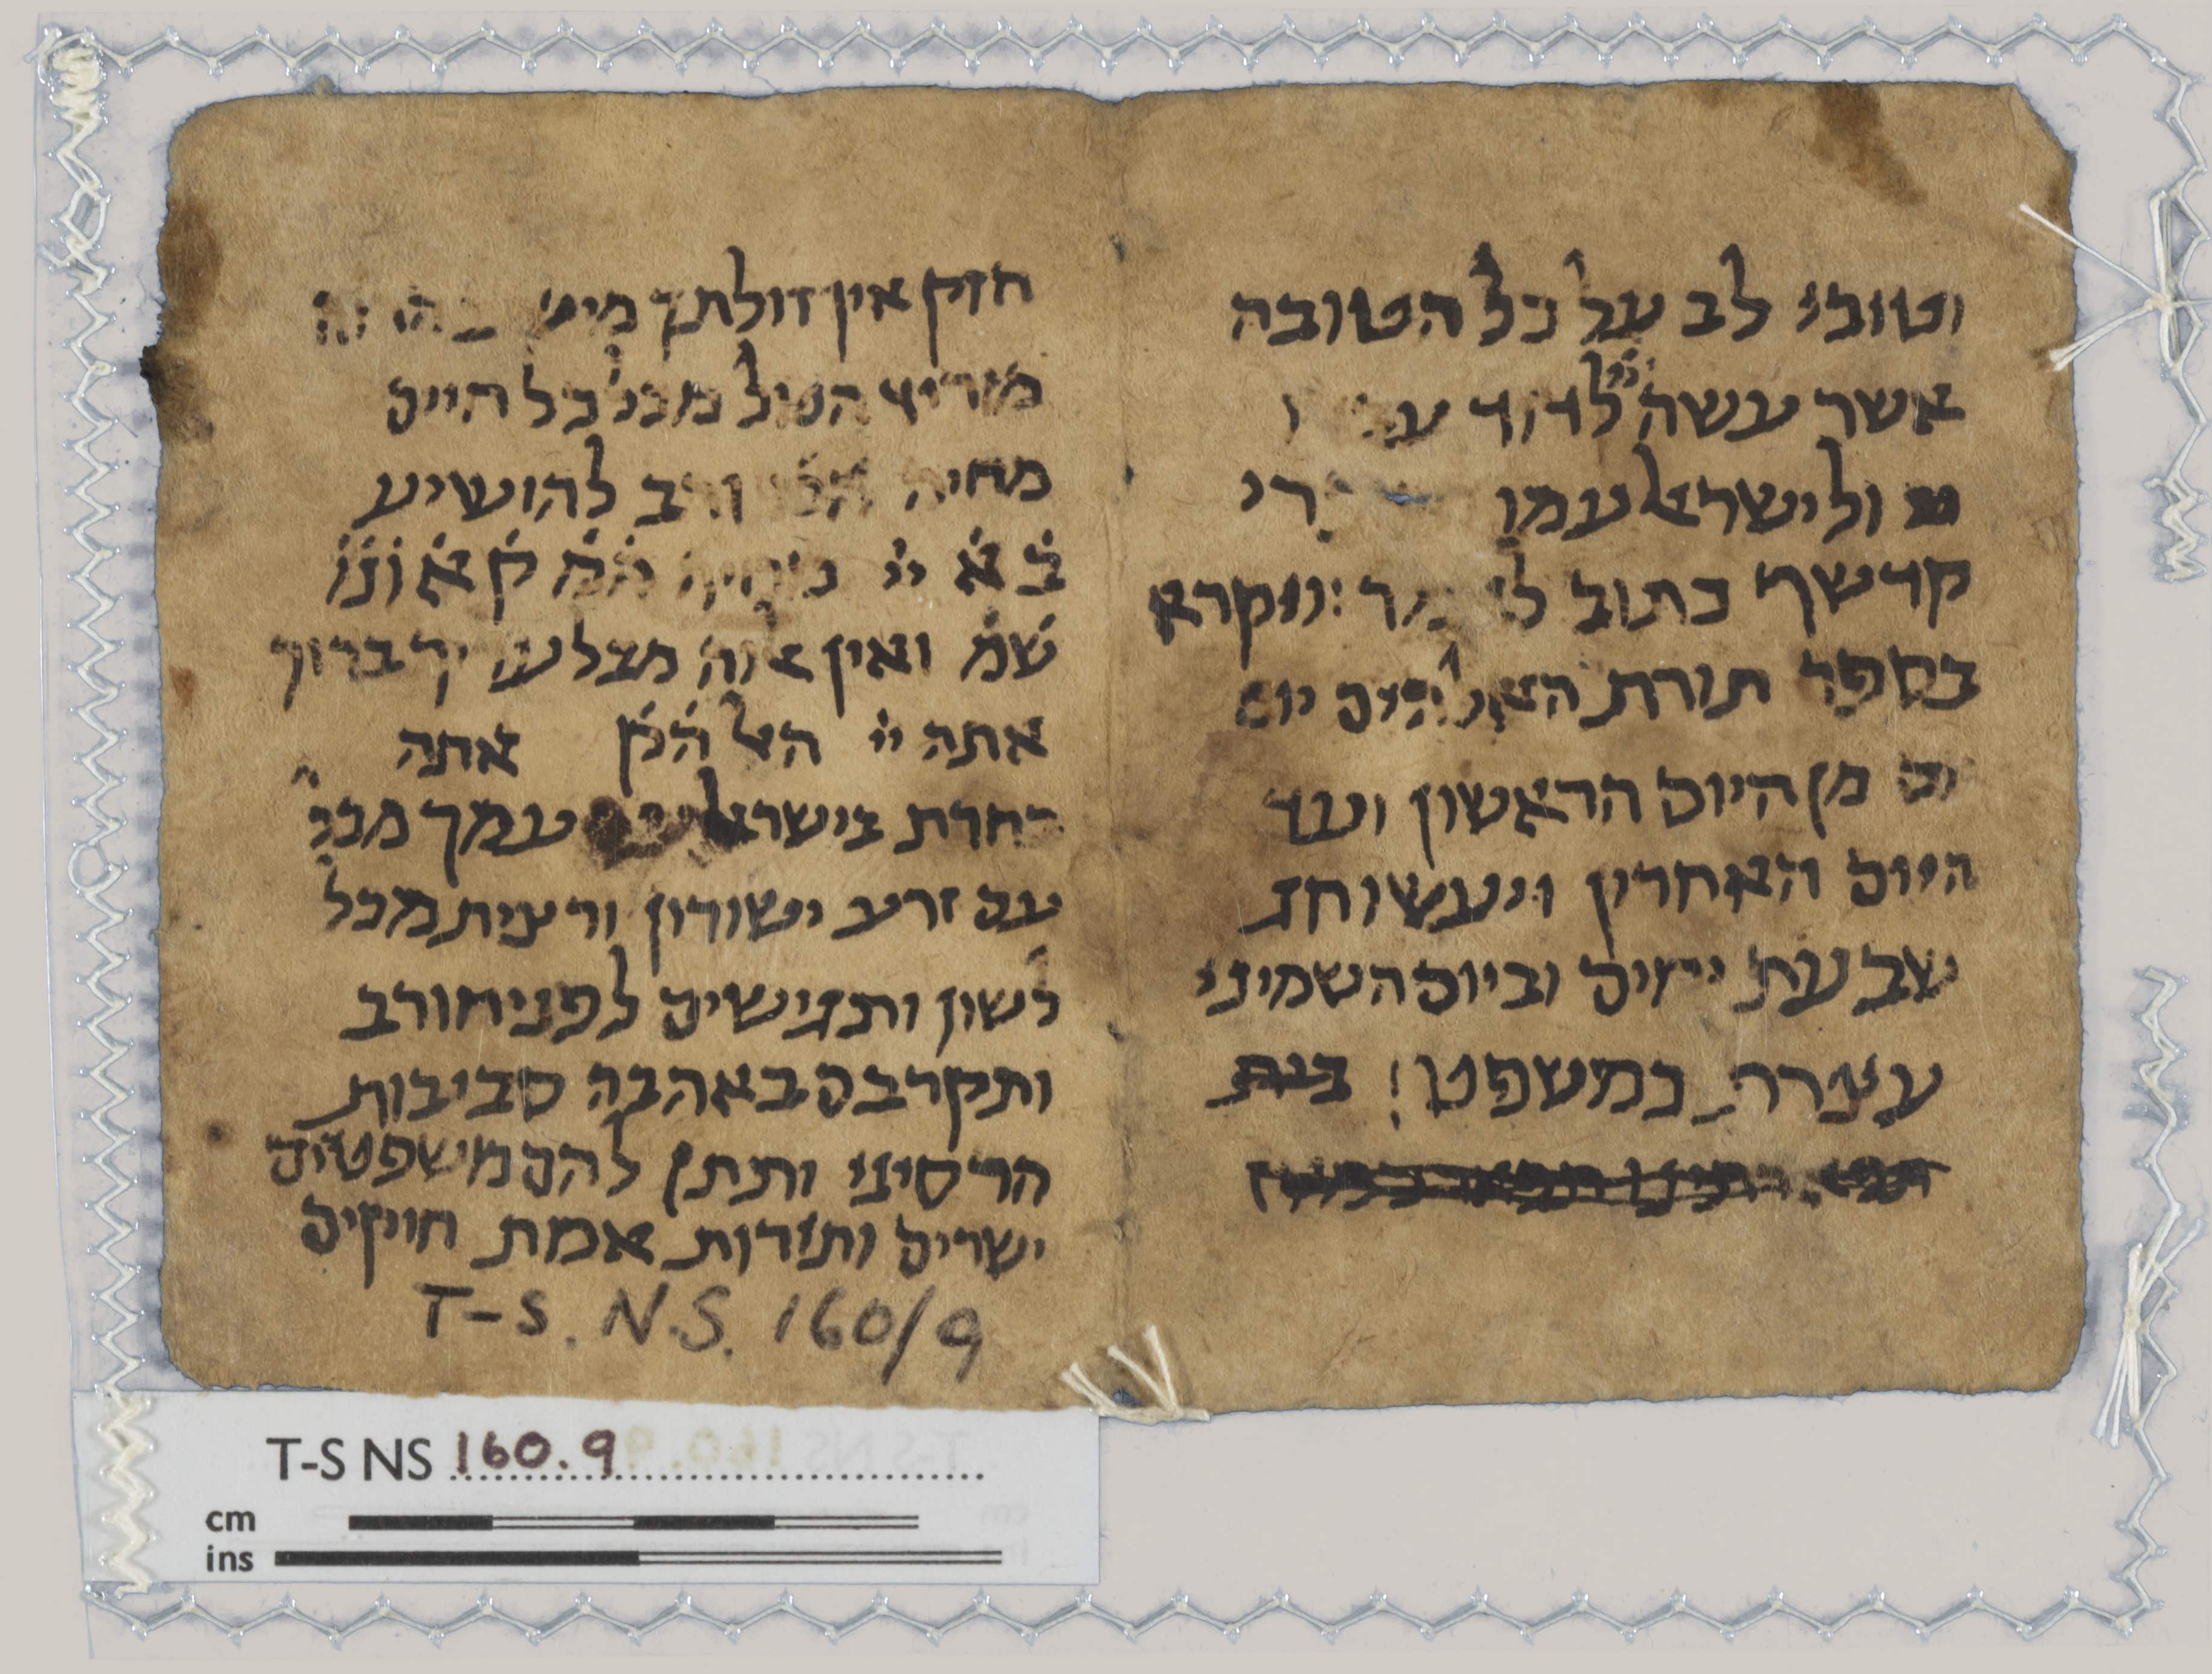 וטובי לב על כל הטובה
אשר עשה ייי לדוד
ולישראל עמו
קדשך כתוב ויקרא
בספר תורת האלהים יום
מן היום הראשון ועד
היום האחרון ויעשו חג
שבעת ימים וביום השמיני
עצרת כמשפט׃
חזק אין זולתך
מוריד הטל מכלכל חיים
מחיה ורב להושיע
שמ̇ ואין אלוה מבלעדיך ברוך
אתה ייי האל הק̇ אתה
בחרת בישראל עמך מכל
עם זרע ישורון ורצית מכל
לשון ותגישים לפני חורב
ותקרבם באהבה סביבות
הר סיני ותתן להם משפטים
ישרים ותורות אמת חוקים
T-S. N.S. 160/9
T-S NS 160.9
cm
ins